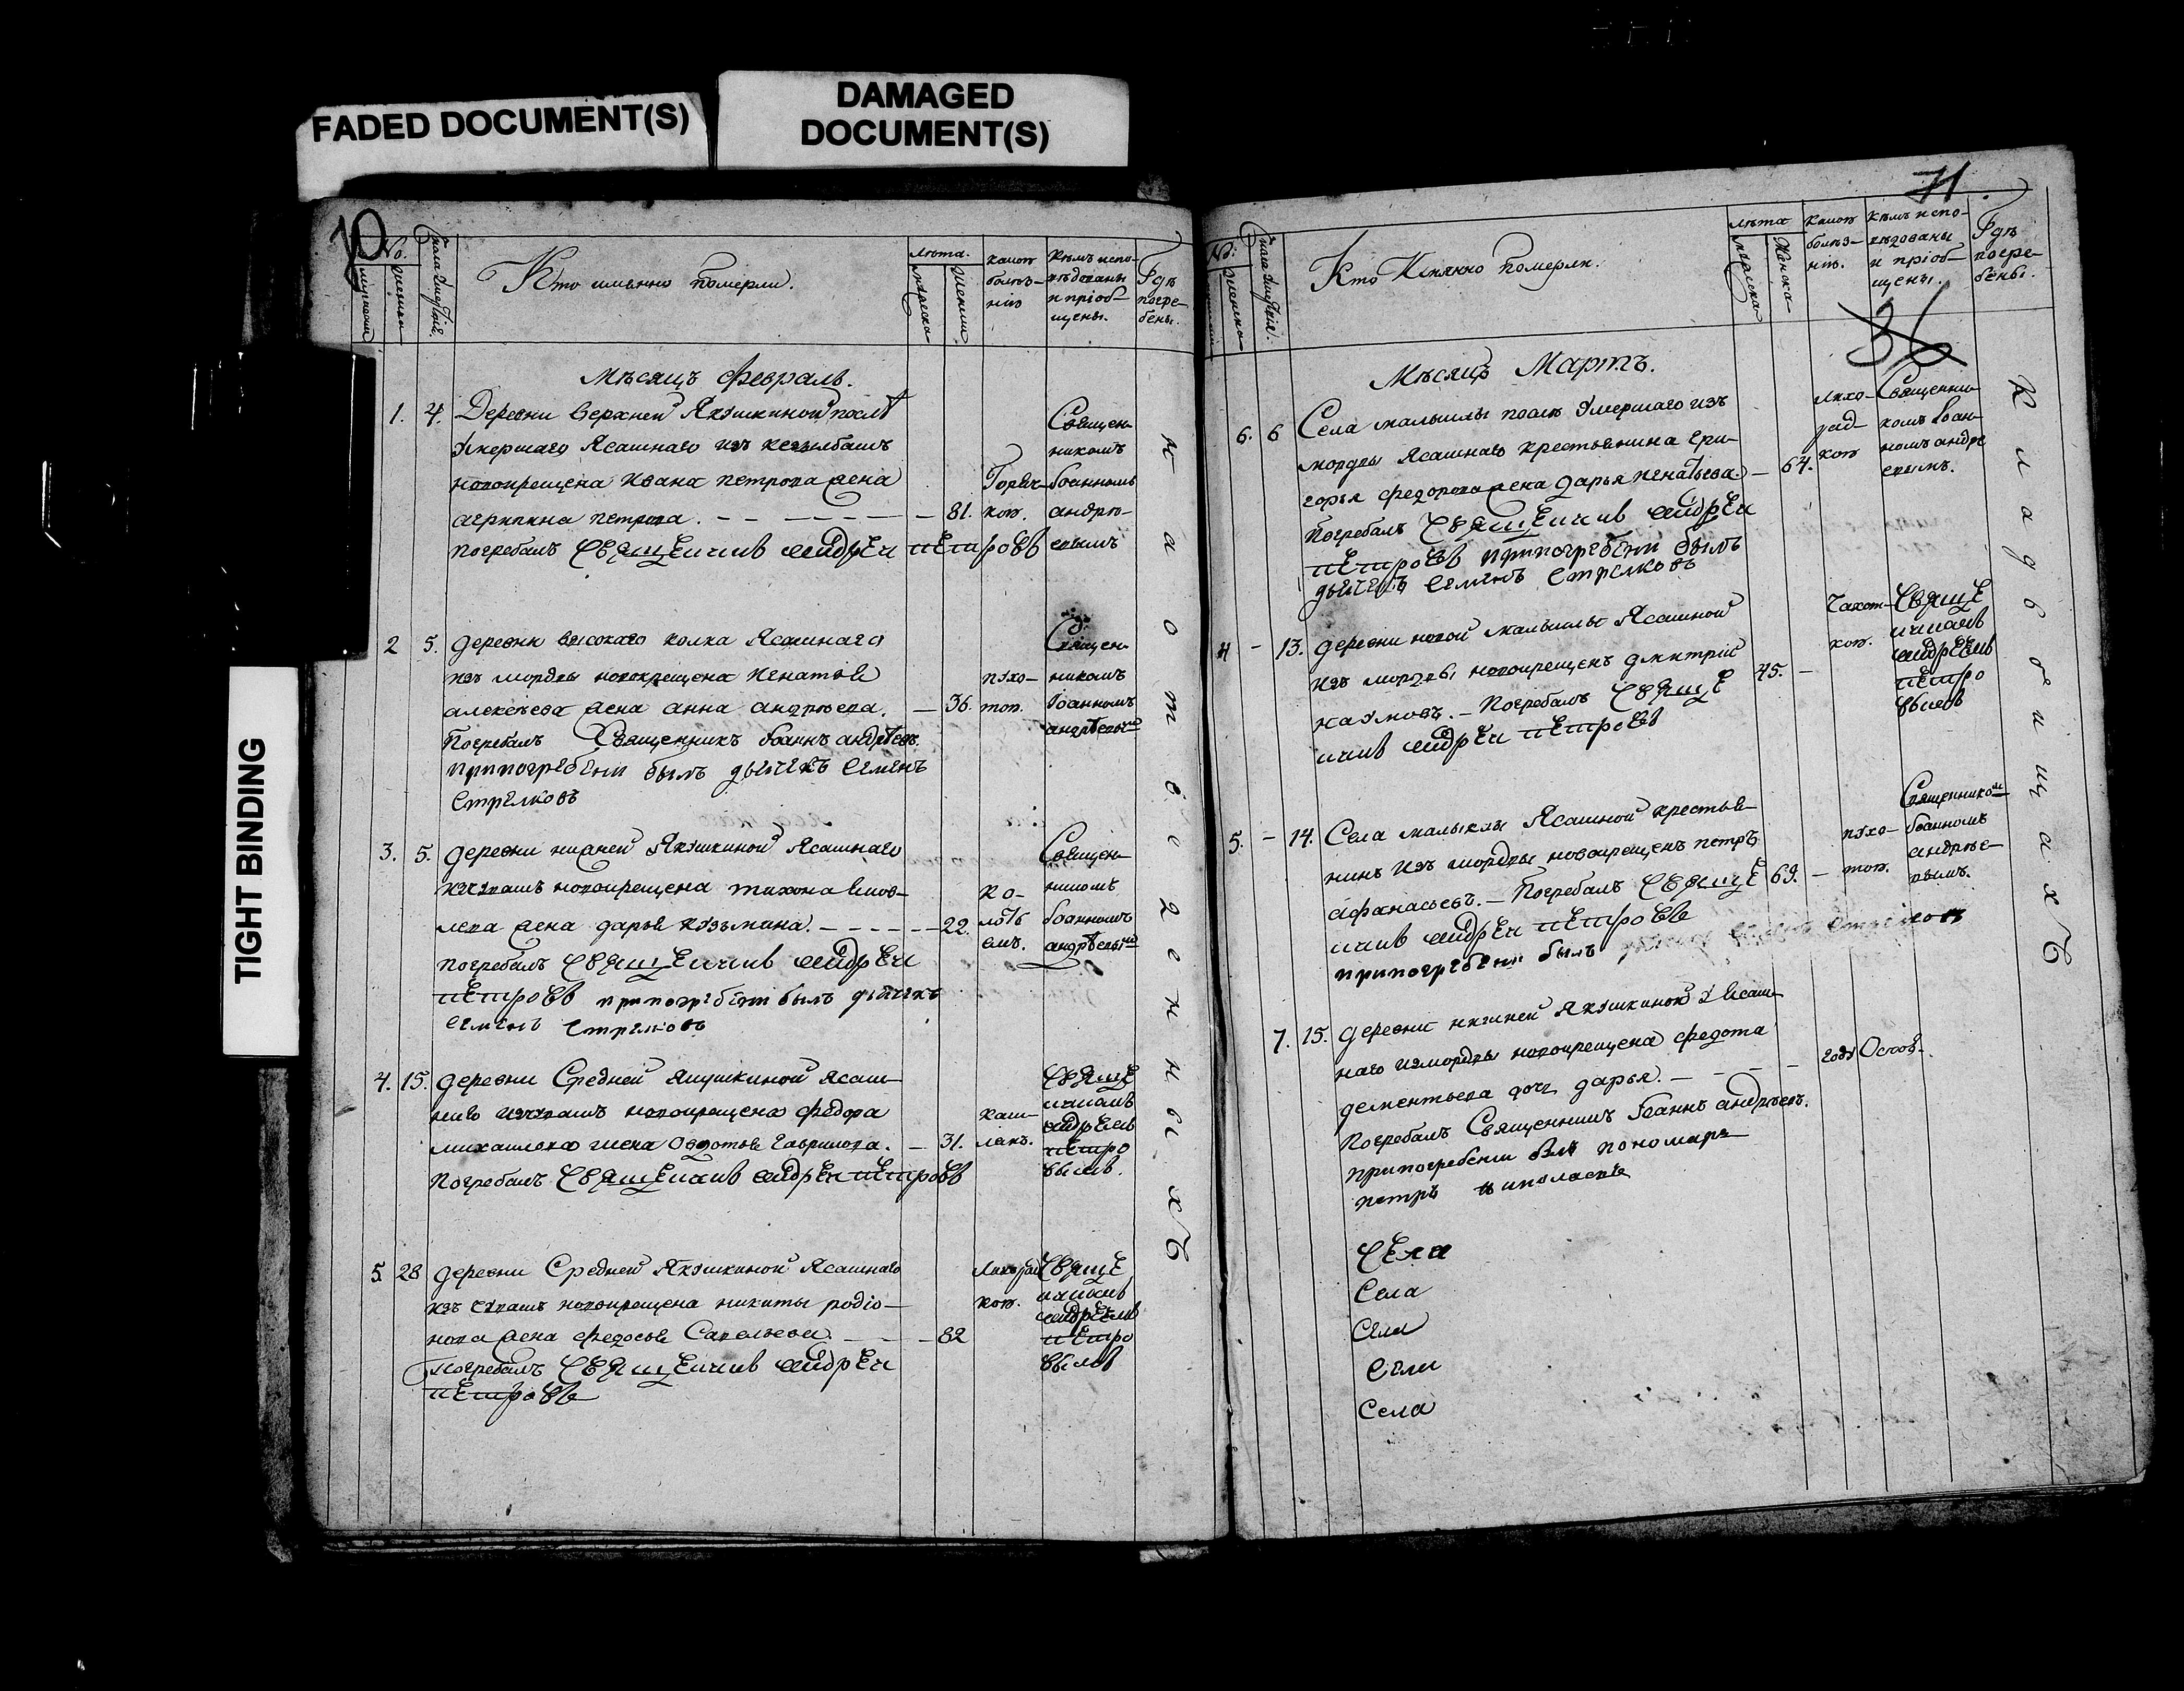 FADED DOCUMENT(S)
DAMAGED
DOCUMENT(S)
TIGHT BINDING
70
№.
женска
Кто имянно померли.
лѣта.
мужеска
какою
болѣз-
нію
Кѣмъ испо-
вѣдованы
и пріоб-
щены.
Гдѣ
погре-
бены.
Мѣсяцъ февраль.
1. 4. Деревни верхней Якушкиной послѣ
умершаго Ясашнаго изъ
новокрещена Ивана петрова жена
агрипина петрова. 81.
погребалъ священникъ андрей петровъ
Горяч-
кою.
Священ-
никомъ
Іоанномъ
андрѣ-
евымъ
2 5. деревни высокаго колка Ясашнаго
изъ мордвы новокрещена игнатья
алексѣева жена анна андрѣева. 36.
Погребалъ Священникъ Іоаннъ андрѣевъ.
припогребени былъ дьячекъ семенъ
стрелковъ
пухо-
тою.
Священ-
никомъ
Іоанномъ
андрѣевым
3. 5. деревни нижней Якушкиной Ясашнаго
изчувашъ новокрещена тихона
жена дарья козьмина. 22.
погребалъ священникъ андрей
петровъ припогребени былъ дьячекъ
семенъ стрелковъ
ко-
лоть
емъ.
Священ-
никомъ
Іоанномъ
андрѣевым
4. 15. деревни Средней якушкиной ясаш-
наго изчувашъ новокрещена федора
михаилова жена Овдотья Гаврилова. 31.
погребалъ священникъ андрей петровъ
каш-
лемъ.
свяще
никомъ
андреемъ
петро
вымъ.
5 28 деревни Средней Якушкиной Ясашнаго
изъ чувашъ новокрещена никиты родіо-
нова жена федосья Савельева. 82
погребалъ священникъ андрей
петровъ
Лихорад
кою.
свяще
никомъ
андреемъ
петро
вымъ
на отведенныхъ
71
36
№:
женска
Кто Имянно померли.
лѣта
мужеска
Женска
какою
болѣз-
нію.
кѣмъ испо-
вѣдованы
и пріоб-
щены.
Гдѣ
погре-
бены.
Мѣсяцъ Мартъ.
6. 6 Села малыклы послѣ умершаго изъ
мордвы Ясашнаго крестьянина гри-
горья федорова жена дарья игнатьева. 64.
погребалъ священникъ андрей
петровъ припогребени былъ
дьячекъ семенъ стрелковъ
лихо-
рад-
кою
Священни-
комъ Іоан-
номъ андрѣ
евымъ.
4 - 13. деревни новой малыклы Ясашной
изъ мордвы новокрещенъ дмитрій
наумовъ. - Погребалъ свяще 45. -
никъ андрей петровъ
Чахот-
кою.
свяще
никомъ
андреемъ
петро
вымъ
5. - 14. Села малыклы Ясашной крестья-
нинъ изъ мордвы новокрещенъ петръ
афанасьевъ. - Погребалъ свяще 69. -
никъ андрей петровъ
припогребени былъ дьячекъ семенъ стрелков
пухо-
тою.
Священником
Іоанномъ
андрѣе-
вымъ.
7. 15. деревни нижней Якушкиной у Ясаш-
наго измордвы новокрещена федота
дементьева дочь дарья. году Оспою.
погребалъ Священникъ Іоаннъ андрѣевъ.
припогребени былъ пономарь
петръ
Села
Села
Села
Села
Села
кладбищахъ